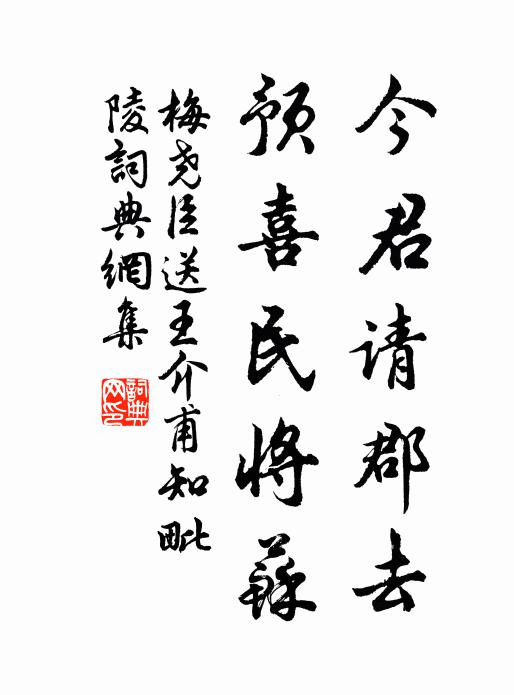 今君请郡去
预喜民将蘇
梅尧臣送王介甫知毗
陵詞典網集
詞典
网印